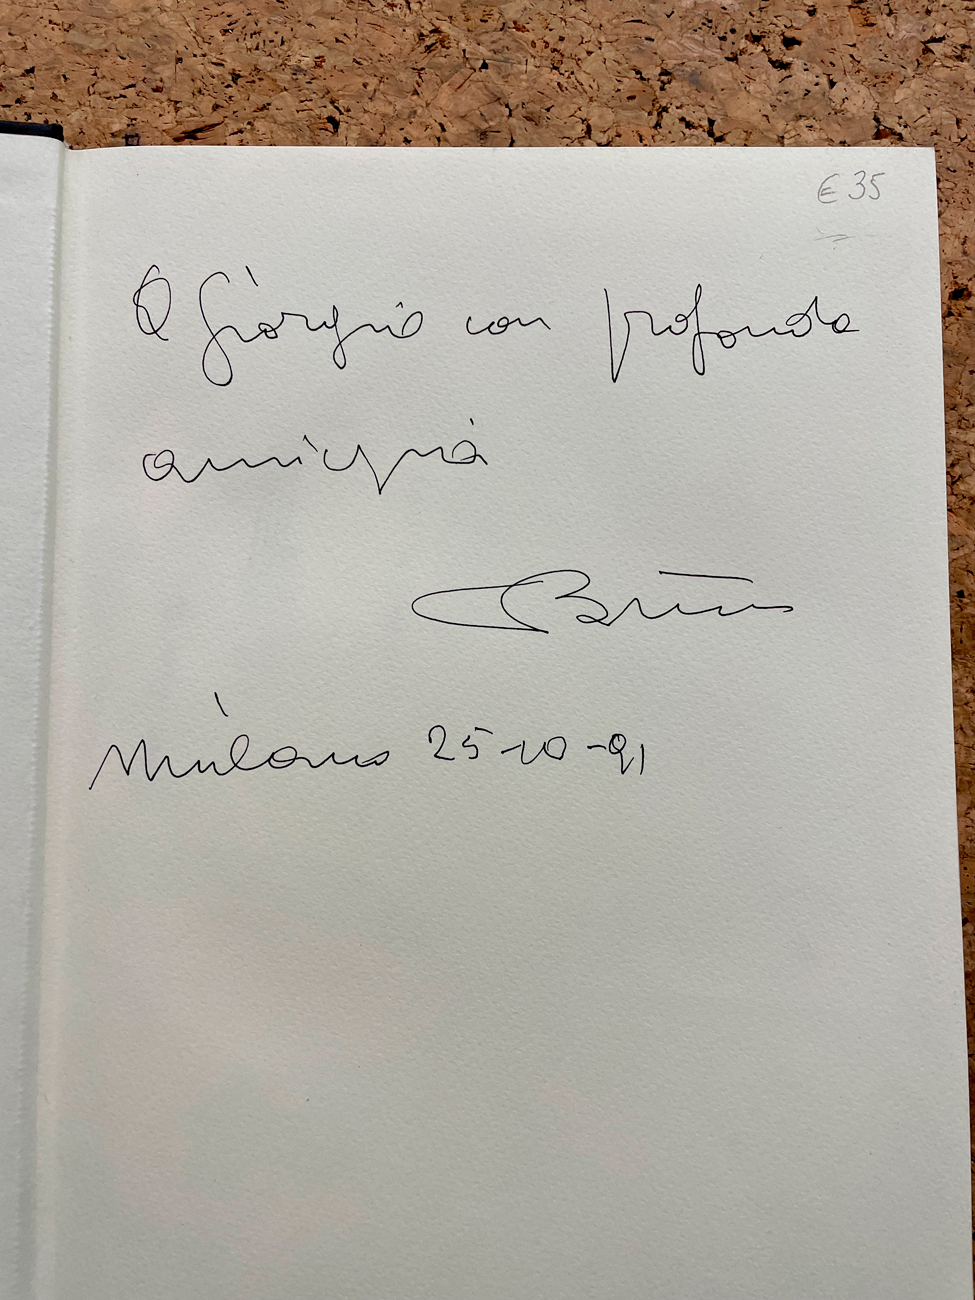 € 35
A Giorgio con profonda
amicizia
Milano 25-10-91